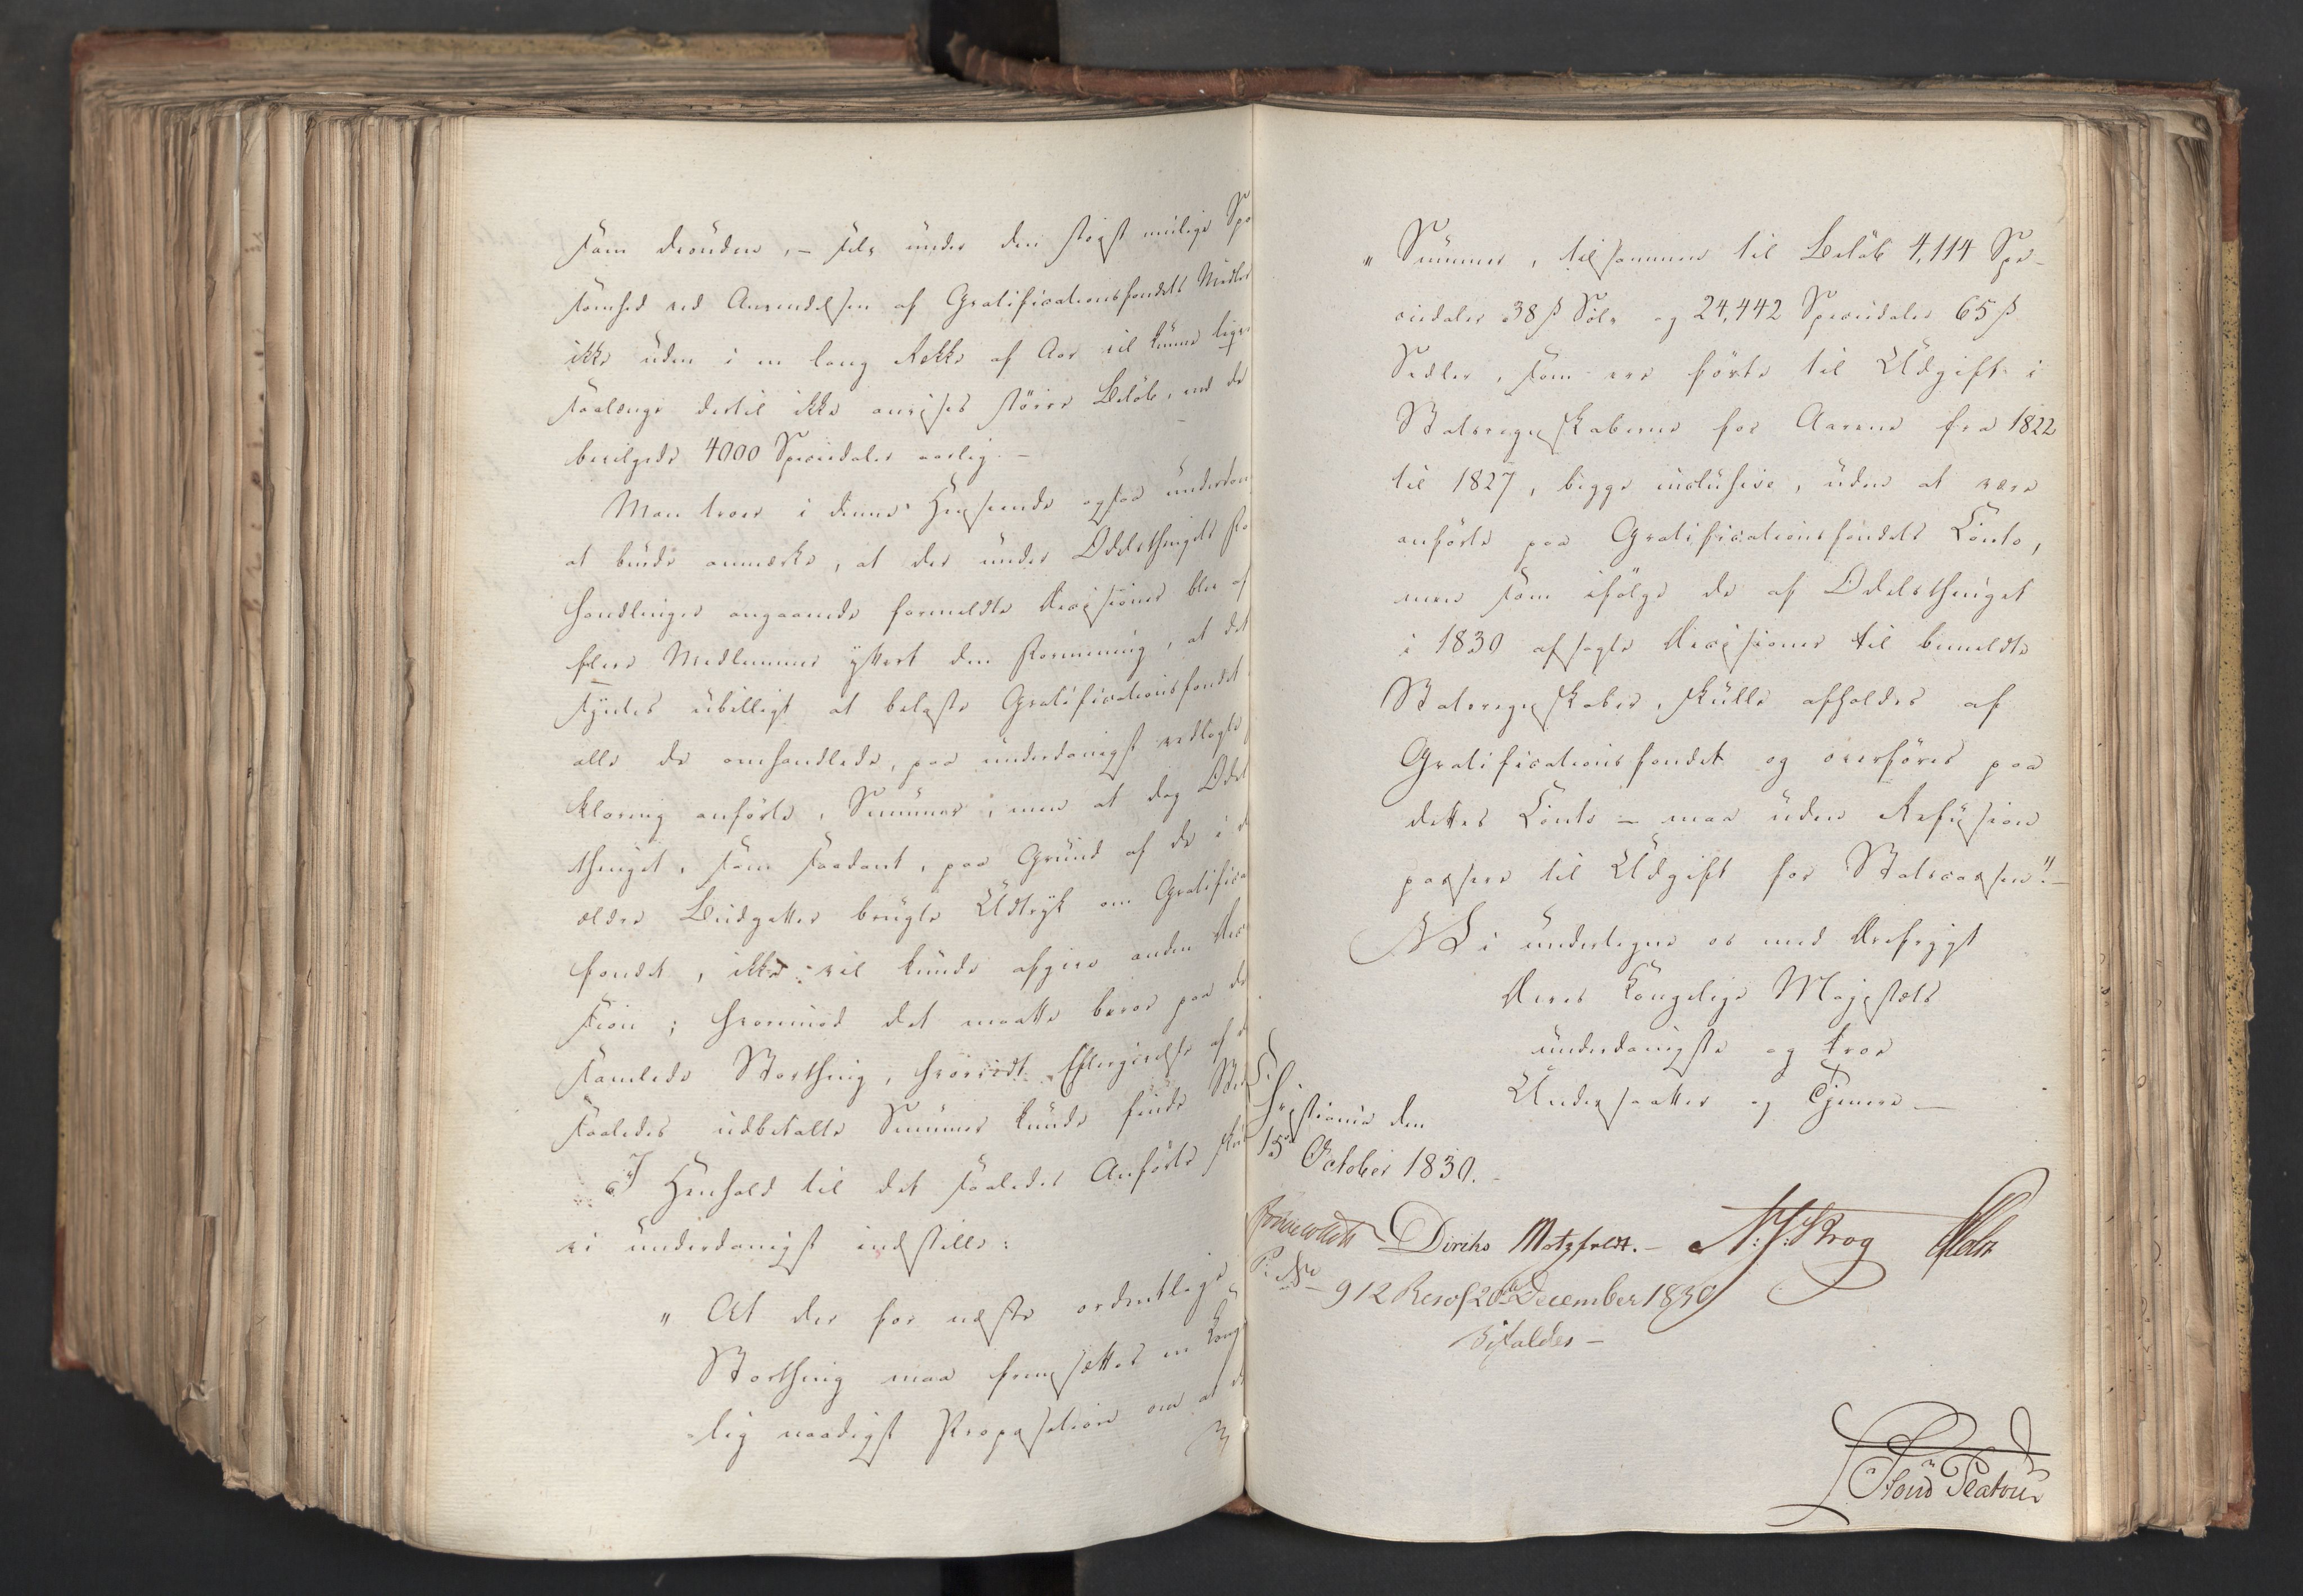 som desuden, – selv under den størst mulige Spa
somhed ved Anvendelsen af Gratificationsfondets Midler
ikke uden i en lang Række af Aar vil kunne
saalænge dertil ikke anvises større Beløb, end de
bevilgede 4000 Speciedaler aarlig. –
Man troer i denne Henseende ogsaa underdan
at burde anmærke, at der under Odelsthingets Fo
handlinger angaaende formeldte Decisioner blev af
flere Medlemmer yttret den Formening, at det
syntes ubilligt at belaste Gratificationsfondet
alle de omhandlede, paa underdanigst vedlagte
klaring anførte, Summer; men at dog Odels
thinget, som saadant, paa Grund af de i d
ældre Budgetter brugte Udtryk om Gratifica
fondet, ikke vil kunde afgive anden Deci
sion; hvorimod det maatte beroe paa de
samlede Storthing, hvorvidt Eftergivelse af d
saaledes udbetalte Summer kunde finde Sted
I Henhold til det saaledes Anførte skul
vi underdanigst indstille:
„ At der for næste ordentlige
Storthing maa fremsættes en Kong
-lig naadigst Proposition om at d
„ Summer, tilsammen til Beløb 4,114 Spe-
ciedaler 38 ß Sølv og 24,442 Speciedaler 65 ß
Sedler, som ere førte til Udgift i
Statsregnskaberne for Aarene fra 1822
til 1827, begge inclusive, uden at være
anførte paa Gratificationsfondets Conto,
men som ifølge de af Odelsthinget
i 1830 afsagte Decisioner til bemeldte
Statsregnskaber, skulle afholdes af
Gratificationsfondet og overføres paa
dettes Conto – maa uden Refusion
passere til Udgift for Statscassen". –
Vi undertegne os med Ærefrygt
Deres Kongelige Majestæts
underdanigste og troe
Undersaatter og Tjenere –
Christiania den
15de October 1830.
Diriks Motzfeldt. – N: J: Krog Holst
P: No 912 Resol 20de December 1830
Bifaldes –